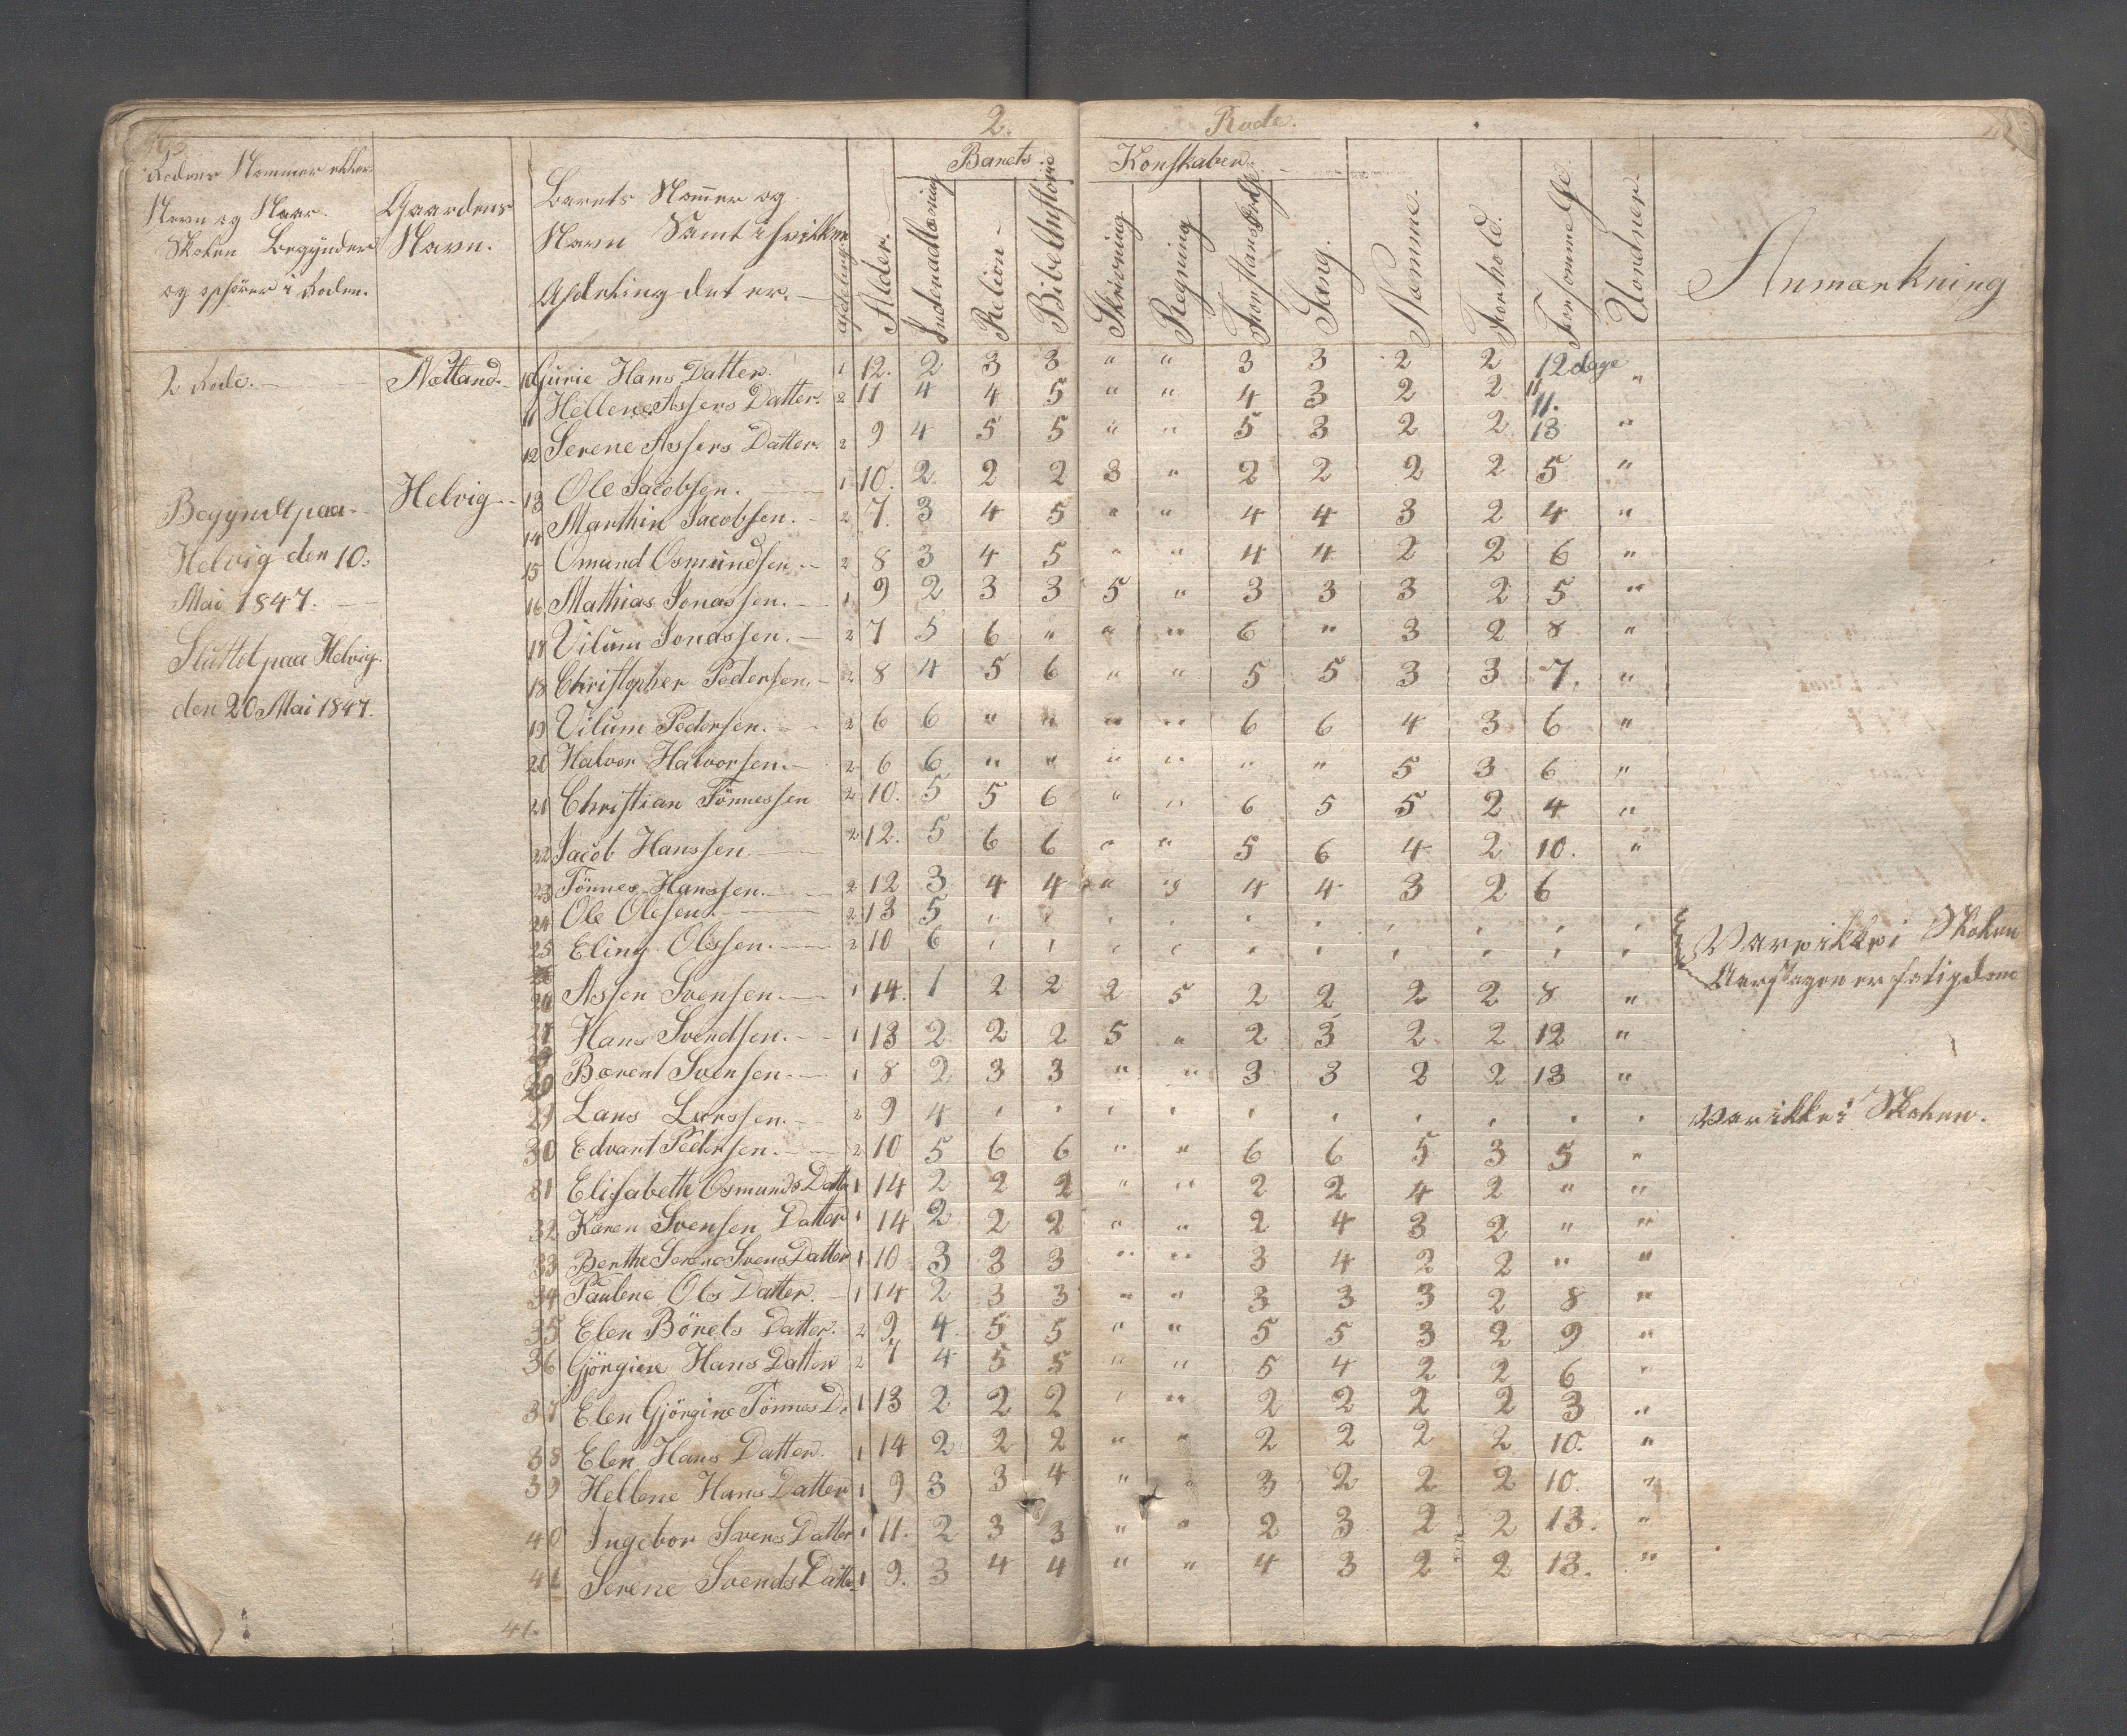 2. Rode.
Rodens Nommer eller
Navn og Naar
Skolen Begynder
og ophører i Roden.
Gaardens
Navn.
Barets Nommer og
Navn Samt i hvilken
Afdeling det er.
Alder.
Barets Konskaber.
Indenadlæsning
Relion
Bibelhistorie
Skrivning
Regning
Sang.
Næmme.
Forhold.
Forsømmelse
Uordner
Anmærkning
2 Rode. Nætland. 10 Gurie Hans Datter. 1 12. 2 3 3 " " 3 3 2 2 12 dage
11 Hellene Assers Datter. 2 11 4 4 5 " " 4 3 2 2 11. "
12 Serene Assers Datter. 2 9 4 5 5 " " 5 3 2 2 13 "
Helvig 13 Ole Jacobsen. 1 10. 2 2 2 3 " 2 2 2 2 5 "
Begyndt paa
14 Marthin Jacobsen. 2 7. 3 4 5 " " 4 4 3 2 4 "
Helvig den 10.
15 Omund Osmundsen 2 8 3 4 5 " " 4 4 2 2 6 "
Mai 1847.
16 Mathias Jonassen. 1 9 2 3 3 5 " 3 3 3 2 5 "
Sluttet paa Helvig
18 Vilum Jonassen. 2 7 5 6 " " " 6 " 3 2 8 "
18 Christopher Pedersen. 2 8 4 5 6 " " 5 5 3 3 7. "
den 20 Mai 1847.
19 Vilum Pedersen. 2 6 6 " " " " 6 6 4 3 6 "
20 Halvor Halvorsen. 2 6 6 " " " " " " 5 3 6 "
21 Christian Tönnessen 2 10. 5 5 6 " " 6 5 5 2 4 "
22 Jacob Hanssen. 2 12. 5 6 6 " " 5 6 4 2 10. "
23 Tönnes Hanssen. 2 12 3 4 4 " " 4 4 3 2 6
24 Ole Olesen. 2 13 5
25 Eling Olssen. 2 10 6 Var ikke i Skolen
26 Assen Svensen. 1 14. 1 2 2 2 5 2 2 2 2 8 " Aarsagen er fatigdom
27 Hans Svendsen. 1 13 2 2 2 5 " 2 3 2 2 12 "
Bærent Svensen. 1 8 2 3 3 " " 3 3 2 2 13 "
29 Lars Larssen. 2 9 4 Var ikke i Skolen.
30 Edvart Pedersen. 2 10 5 6 6 " " 6 6 5 3 5 "
31 Elisabethe Osmunds Datter 1 14 2 2 2 " " 2 2 4 2 " "
32 Karen Svensen Datter 1 14 2 2 2 " " 2 4 3 2 " "
33 Berthe Serene Svens Datter 1 10 3 3 3 " " 3 4 2 2 " "
34 Paulene Ols Datter. 1 14 2 3 3 " " 3 3 3 2 8 "
35 Elen Börets Datter. 2 9 4 5 5 " " 5 5 3 2 9 "
36 Gjörgine Hans Datter 2 7 4 5 5 " " 5 4 2 2 6 "
37 Elen Gjörgine Tönnes D. 1 13 2 2 2 " " 2 2 2 2 3 "
38 Elen Hans Datter. 1 14 2 2 2 " " 2 2 2 2 10. "
39 Hellene Hans Datter 1 9 3 3 4 " " 3 2 2 2 10. "
40 Ingebor Svens Datter 1 11. 2 3 3 " " 2 3 2 2 13. "
41 Serene Svends Datter 1 9. 3 4 4 " " 4 3 2 2 13. "
41.